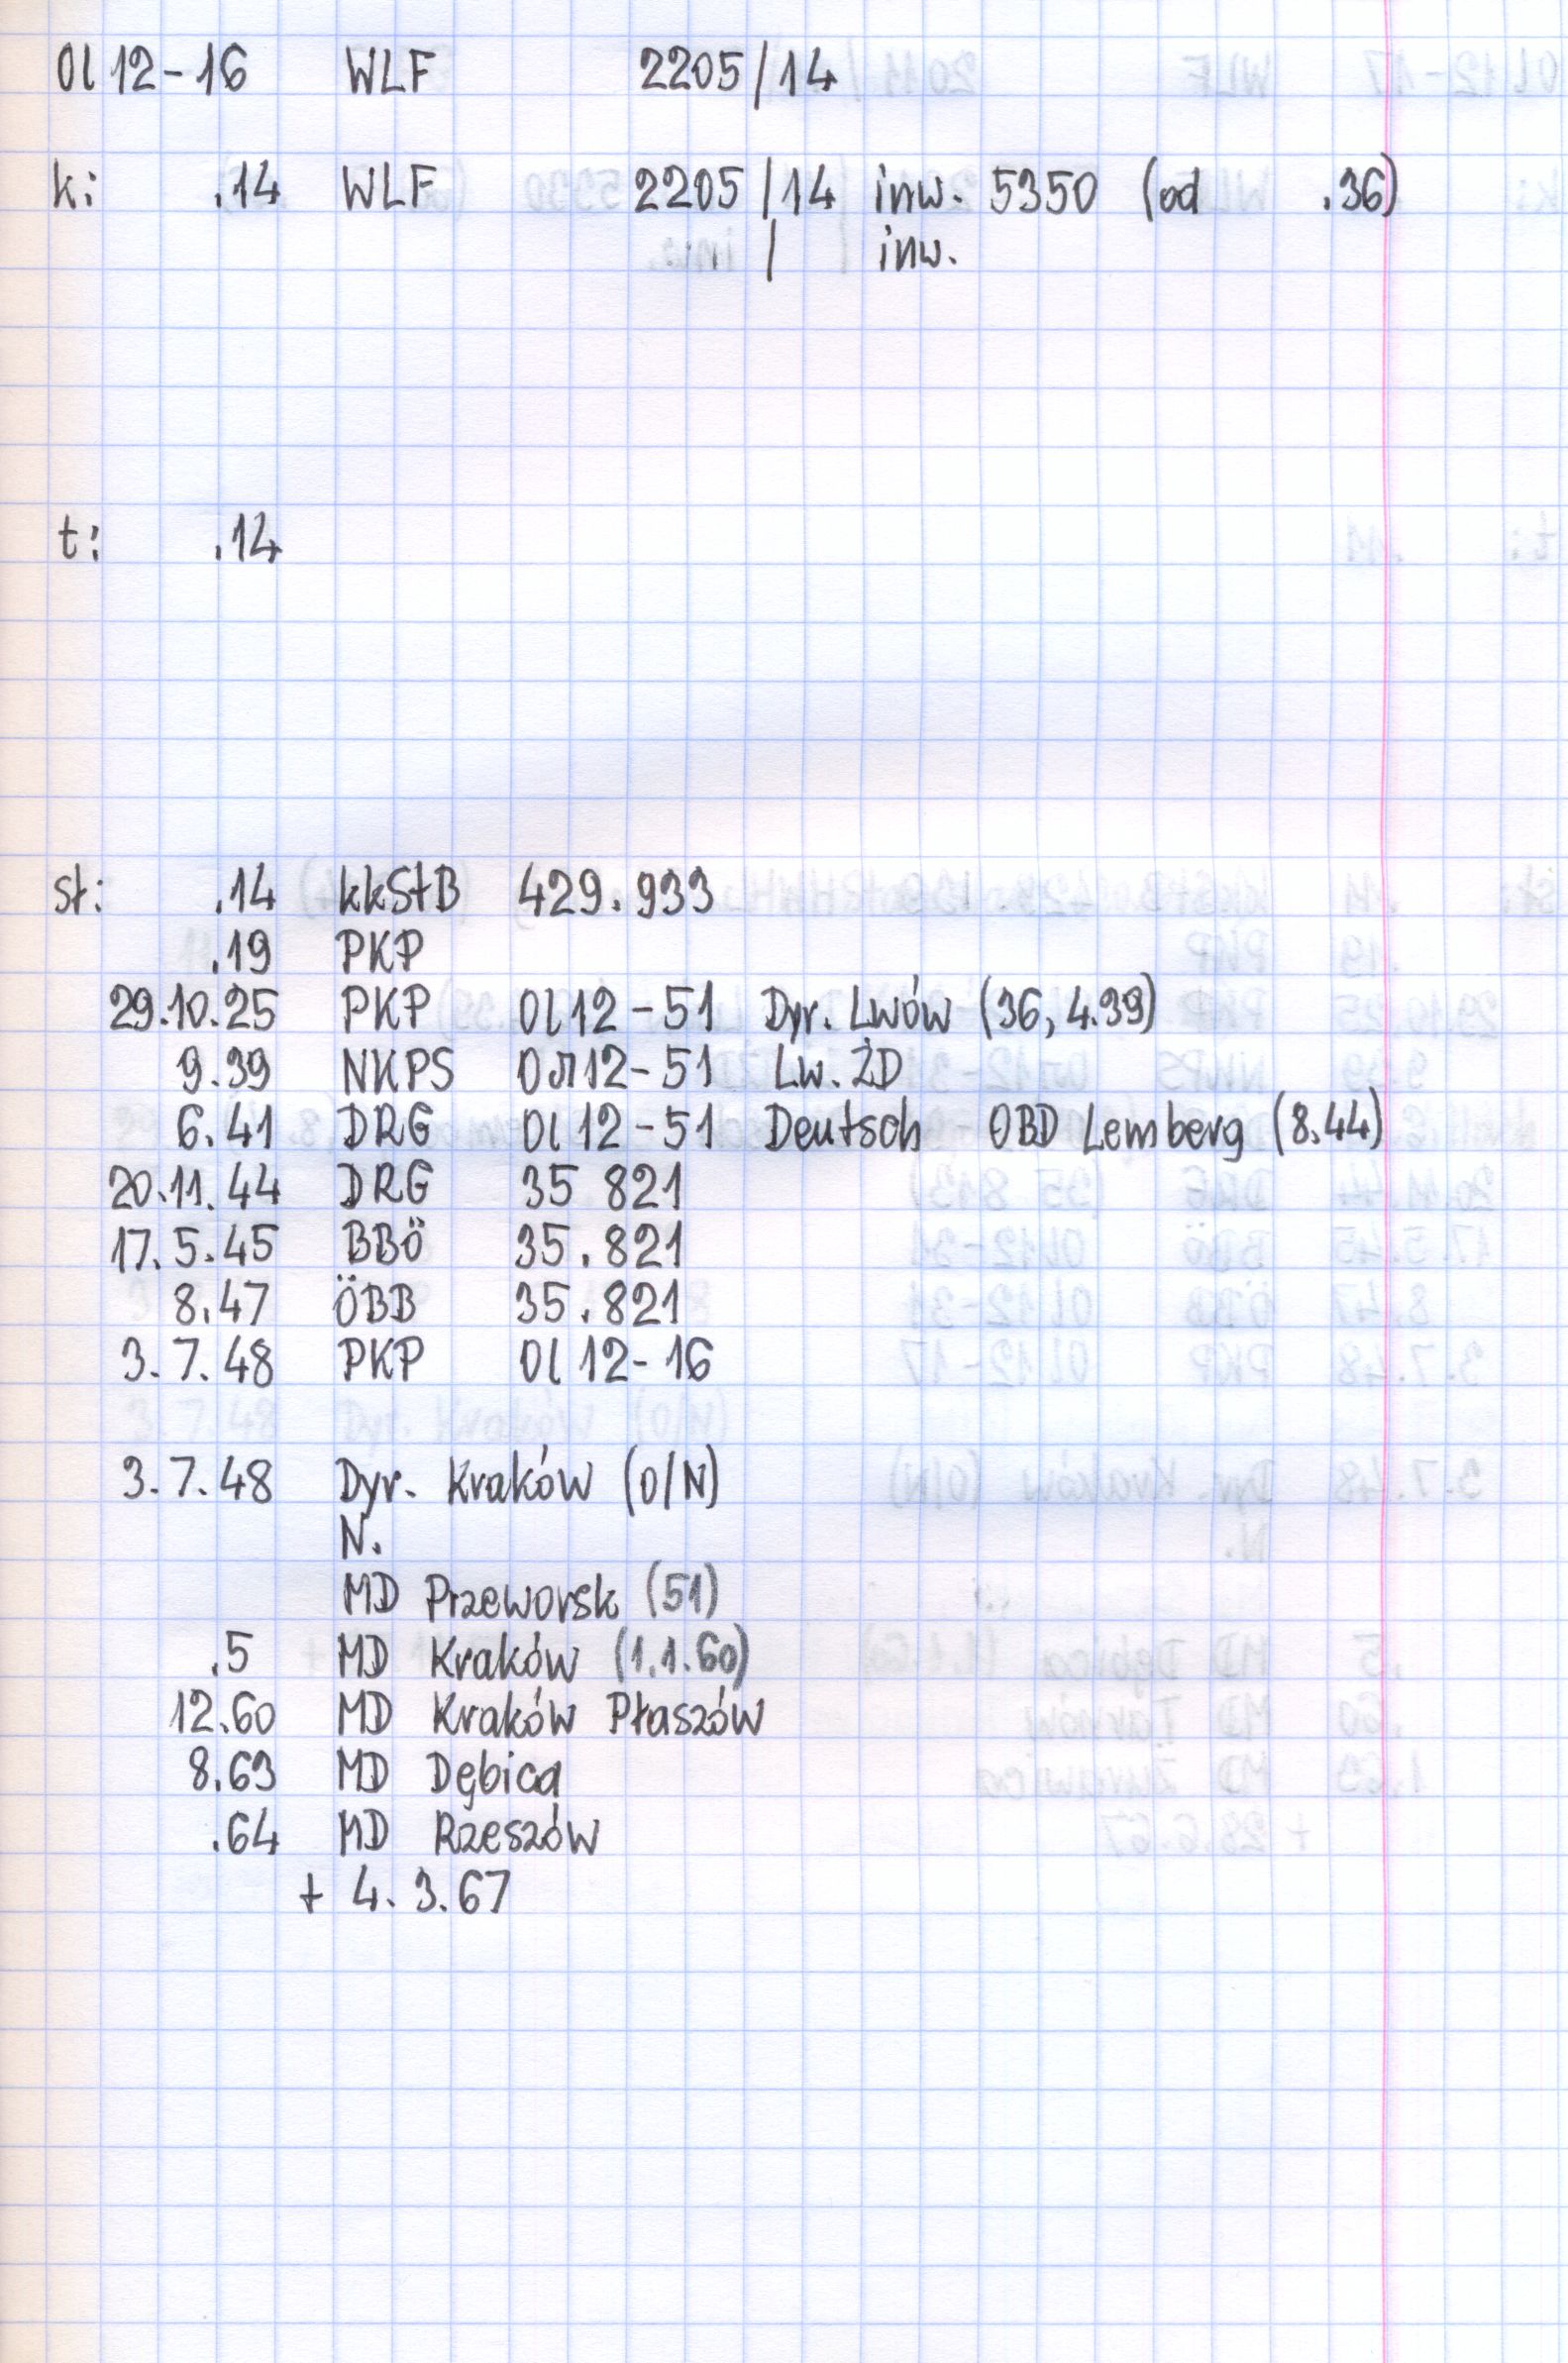 Ol 12-16 WLF 2205/14
k: .14 WLF 2205/14 inw. 5350 (od .36)
/ inw.
t: .14
st: .14 kkStB 429.933
.19 PKP
29.10.25 PKP Ol12-51 Dyr. Lwów (36, 4.39)
9.39 NKPS Ол12-51 Lw. ŻD
6.41 DRG Ol12-51 Deutsch OBD Lemberg (8.44)
20.11.44 DRG 35 821
17.5.45 BBÖ 35.821
8.47 ÖBB 35.821
3.7.48 PKP Ol12-16
3.7.48 Dyr. Kraków (O/N)
N.
MD Przeworsk (51)
.5 MD Kraków (1.1.60)
12.60 MD Kraków Płaszów
8.63 MD Dębica
.64 MD Rzeszów
+ 4.3.67